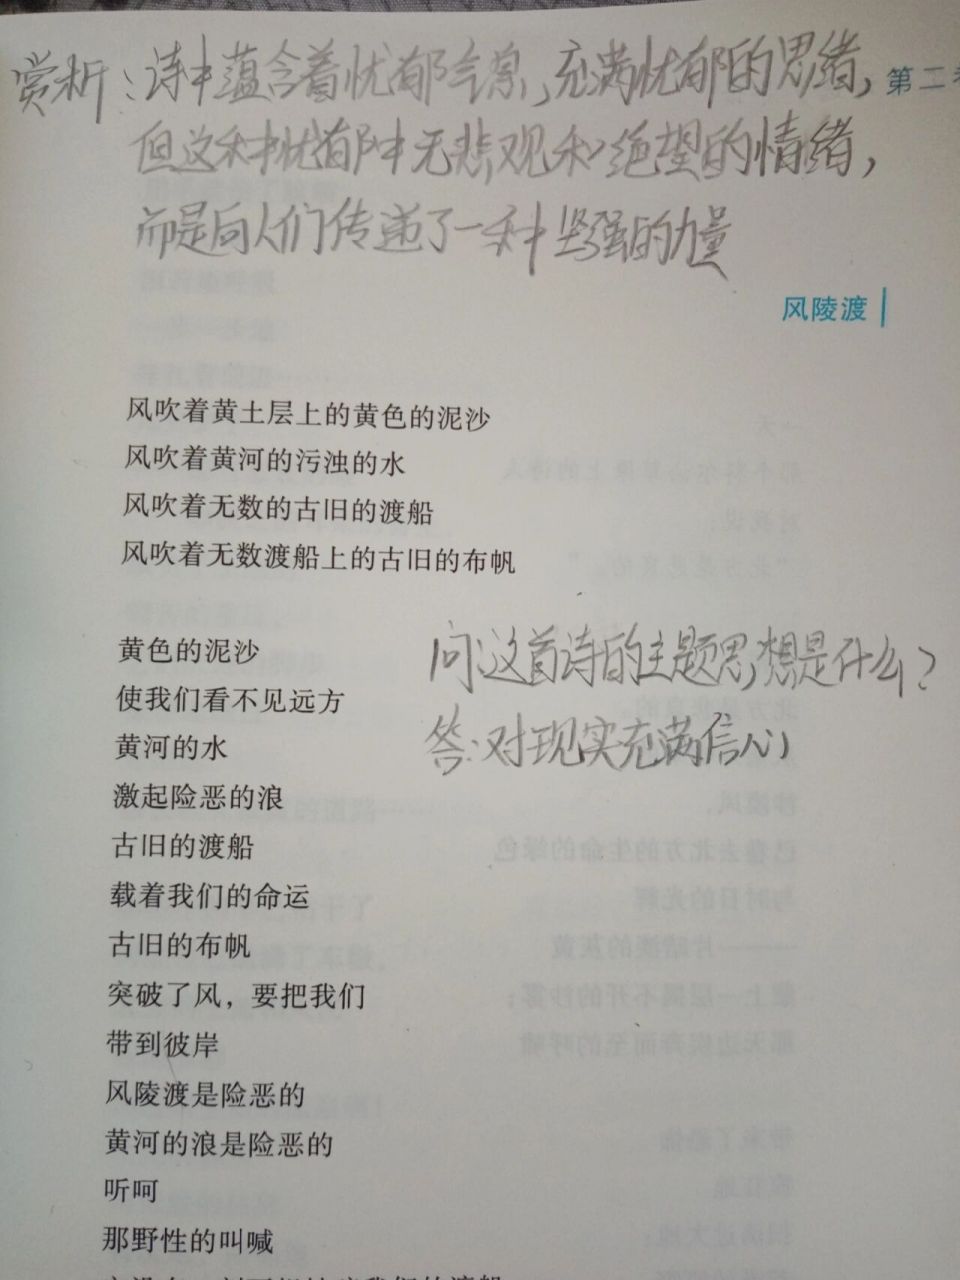 赏析：诗中蕴含着忧郁气息，充满忧郁的思绪，
第二
但这种忧郁中无悲观和绝望的情绪，
而是向人们传递了一种坚强的力量
风陵渡
风吹着黄土层上的黄色的泥沙
风吹着黄河的污浊的水
风吹着无数的古旧的渡船
风吹着无数渡船上的古旧的布帆
黄色的泥沙
问：这首诗的主题思想是什么？
使我们看不见远方
黄河的水
答：对现实充满信心
激起险恶的浪
古旧的渡船
载着我们的命运
古旧的布帆
突破了风，要把我们
带到彼岸
风陵渡是险恶的
黄河的浪是险恶的
听呵
那野性的叫喊